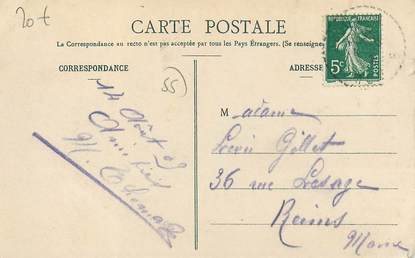 20 t
CARTE POSTALE
La Correspondance au recto n'est pas acceptée par tous les Pays Étrangers. (Se renseigner
REPUBLIQUE FRANÇAISE
5c POSTES
CORRESPONDANCE
ADRESSE
55
14 Août 09
Amitiés
M.
Madame
Gillet
36 rue Lesage
Reims
Marne